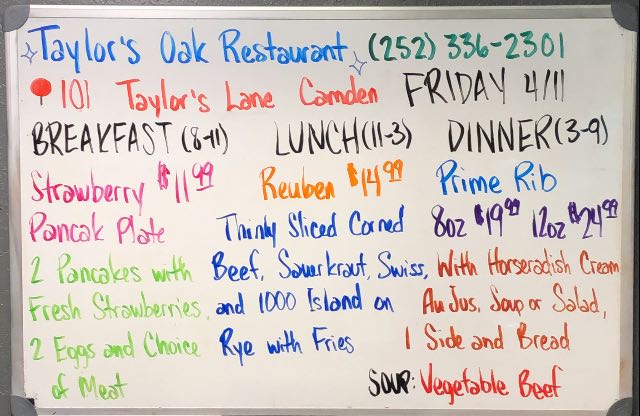 Taylor's Oak Restaurant (252) 336-2301
101 Taylor's Lane Camden FRIDAY 4/11
BREAKFAST (8-11) LUNCH (11-3) DINNER (3-9)
Strawberry $11.99
Pancak Plate
2 Pancakes with
Fresh Strawberries,
2 Eggs and Choice
of Meat
Reuben $14.99
Thinly Sliced Corned
Beef, Sauerkraut, Swiss,
and 1000 Island on
Rye with Fries
Prime Rib
8oz $19.99 12oz $24.99
With Horseradish Cream
Au Jus, Soup or Salad,
1 Side and Bread
SOUP: Vegetable Beef